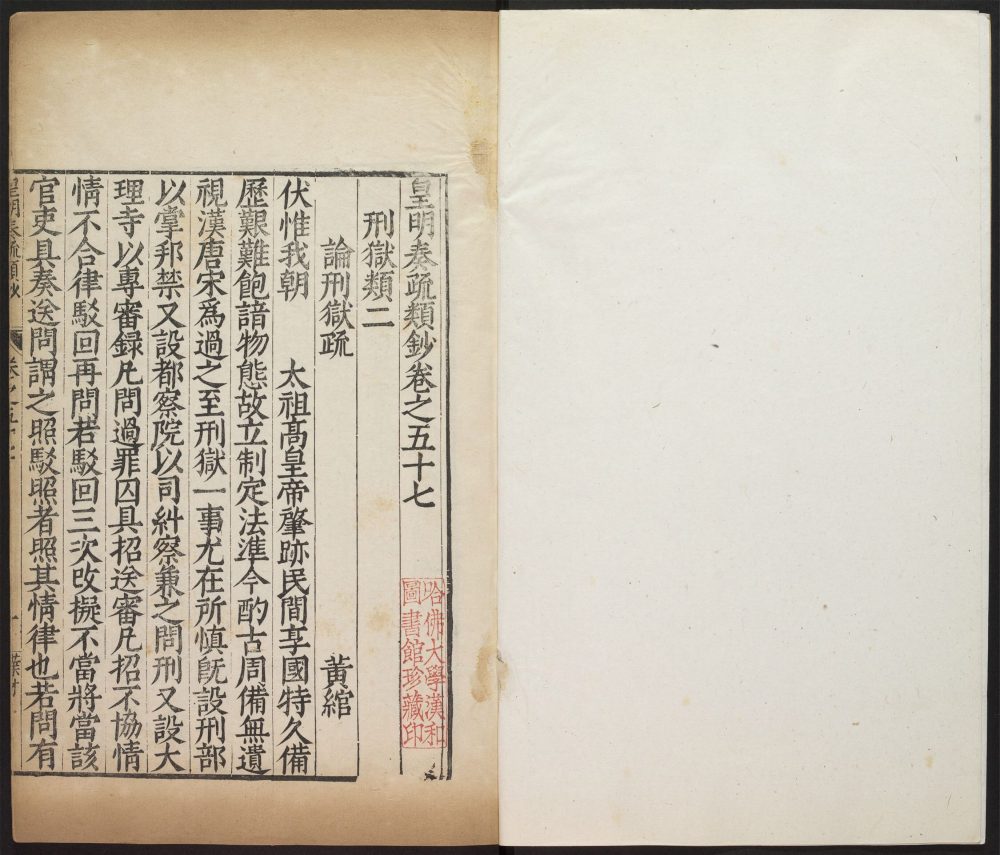 皇明奏疏類鈔卷之五十七
哈佛大學漢和
圖書館珍藏印
刑獄類二
論刑獄疏 黃綰
伏惟我朝 太祖高皇帝肇跡民間享國特久備
歷艱難飽諳物態故立制定法準今酌古周備無遺
視漢唐宋爲過之至刑獄一事尤在所慎旣設刑部
以掌邦禁又設都察院以司糾察兼之問刑又設大
理寺以專審録凡問過罪囚具招送審凡招不協情
情不合律駁回再問若駁回三次改擬不當將當該
官吏具奏送問謂之照駁照者照其情律也若問有
皇明奏疏類鈔 卷之五十